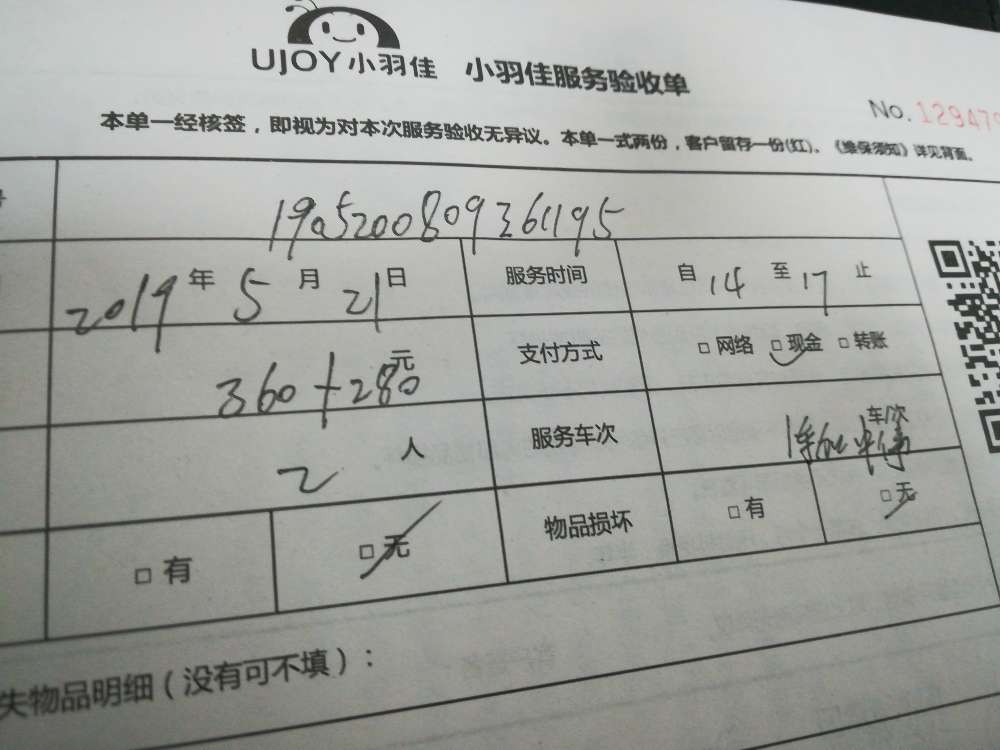 UJOY小羽佳 小羽佳服务验收单
No. 129479
本单一经核签，即视为对本次服务验收无异议。本单一式两份，客户留存一份(红)、《维保须知》详见背面。
190520080936195
2019 年 5 月 21 日 服务时间 自 14 至 17 止
360+280 元 支付方式 □ 网络 □ 现金 □ 转账
2 人 服务车次 车/次
□ 有 □ 无 物品损坏 □ 有 □ 无
失物品明细（没有可不填）：